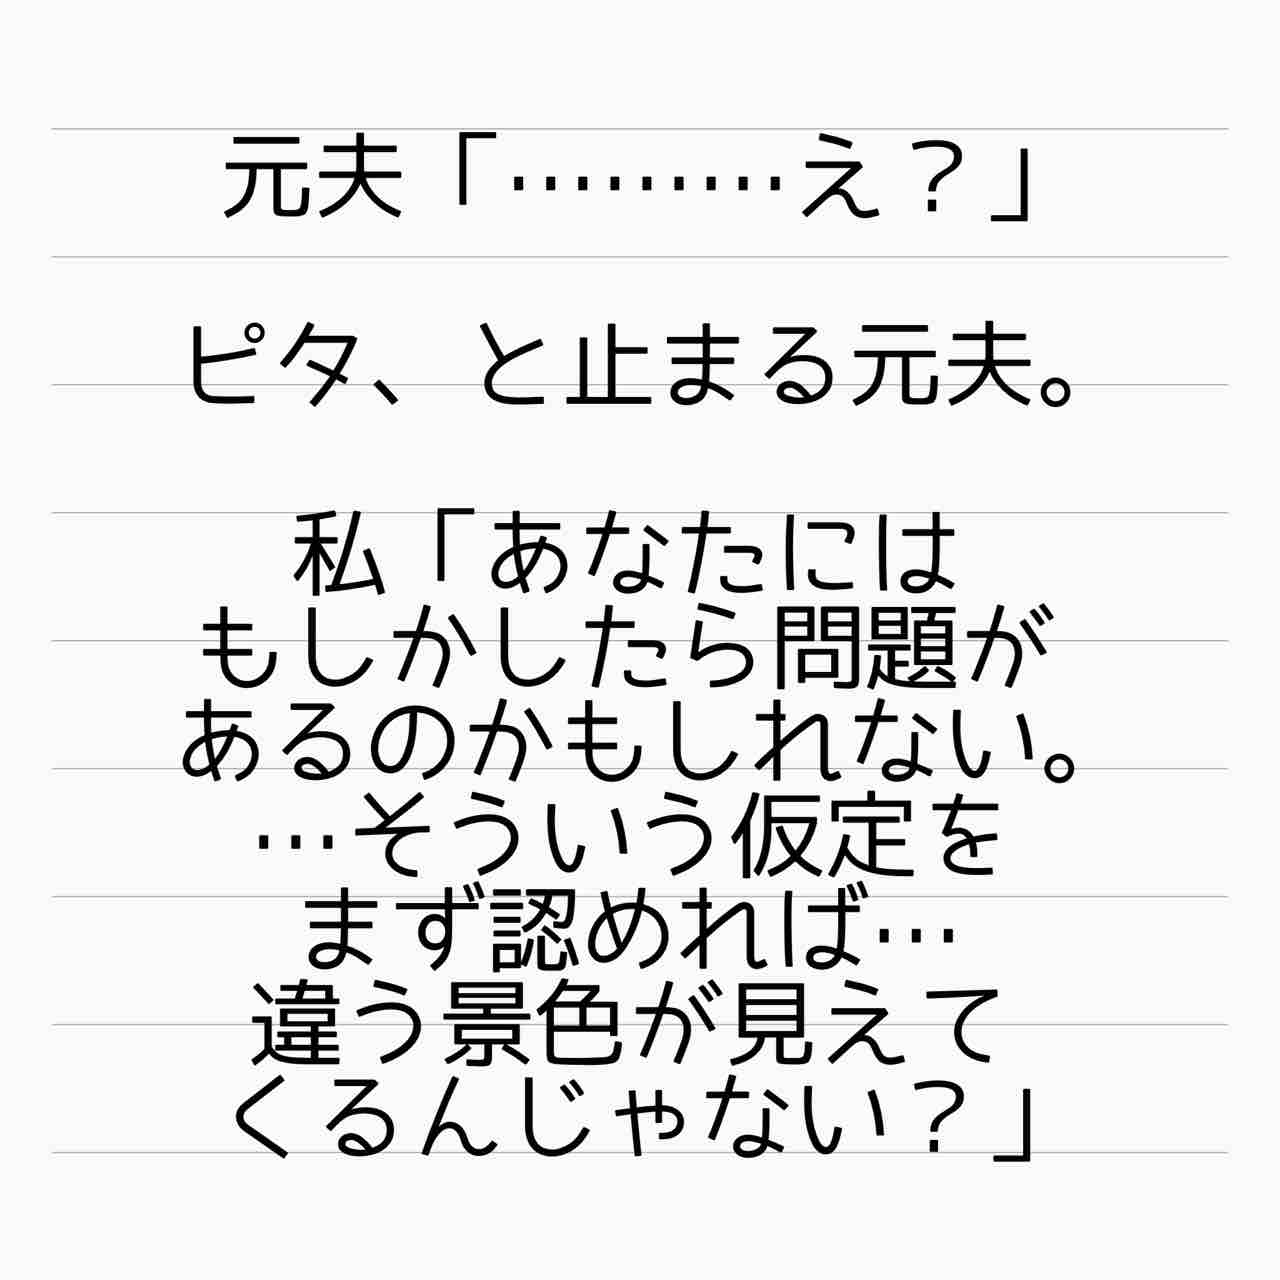 元夫「………え？」
ピタ、と止まる元夫。
私「あなたには
もしかしたら問題が
あるのかもしれない。
…そういう仮定を
まず認めれば…
違う景色が見えて
くるんじゃない？」